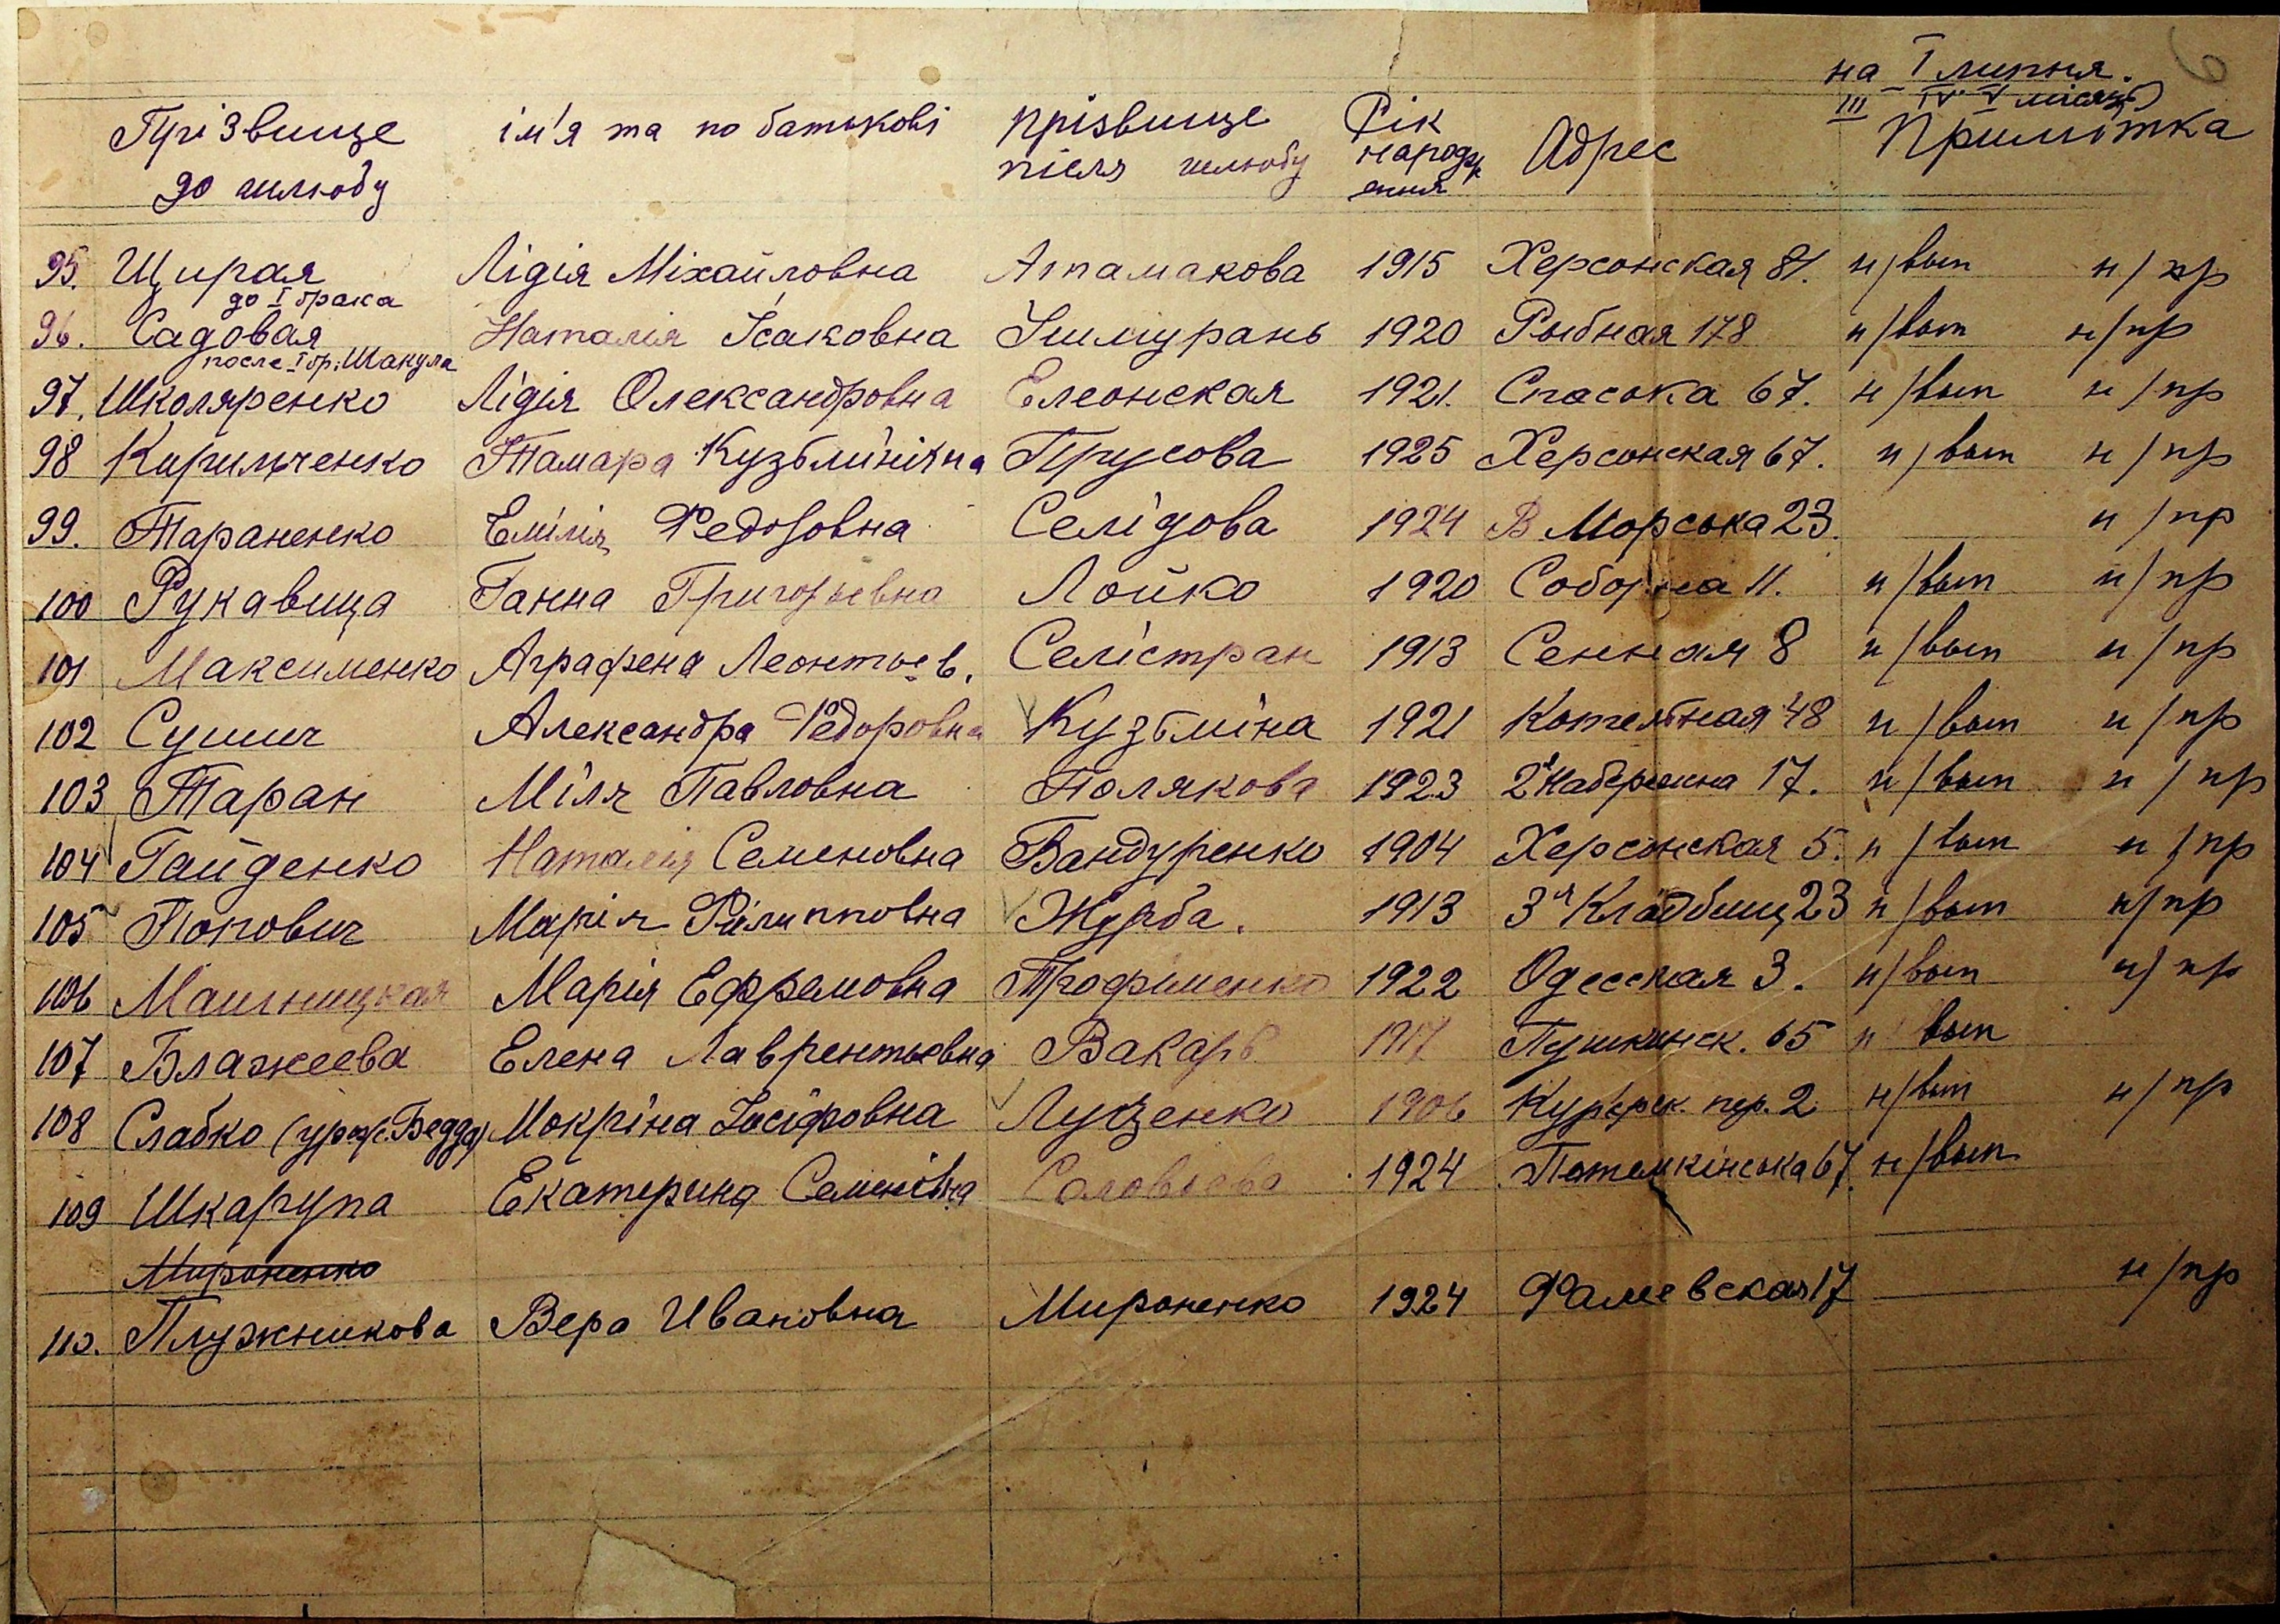 на I липня.
III IV V місяць
6
Прізвище ім'я та по батькові прізвище Рік Адрес Примітка
до шлюбу після шлюбу народж
ення
95. Щирая Лідія Міхайловна Атамакова 1915 Херсонская 81. н/вып н/пр
до I брака
96. Садовая Наталія Ісаковна 1920 Рыбная 178 н/вып н/пр
после I бр. Шакула
97. Школяренко Лідія Олександровна Елеонская 1921. Спаська 67. н/вып н/пр
98 Кирильченко Тамара Кузьмінічна Прусова 1925 Херсонская 67. н/вып н/пр
99. Тараненко Емілія Федосовна Селідова 1924 В Морська 23. н/пр
100 Рукавица Ганна Григорьевна Лойко 1920 Соборна 11. н/вып н/пр
101 Максименко Аграфена Леонтьев. Селістран 1913 Сенная 8 н/вып н/пр
102 Сушич Александра Федоровна Кузьміна 1921 Котельная 48 н/вып н/пр
103 Таран Міля Павловна Полякова 1923 2я Набережна 17. н/вып н/пр
104 Гайденко Наталія Семеновна Бандуренко 1904 Херсонская 5. н/вып н/пр
105 Попович Марія Филипповна Журба. 1913 3я Кладбищ 23 н/вып н/пр
106 Марія Ефремовна Трофіменко 1922 Одесская 3. н/вып н/пр
107 Блажеева Елена Лаврентьевна Вакарь 1917 Пушкинск. 65 н вып
108 Слабко (урож. Бедда) Мокріна Іосіфовна Луценко 1906 Курьерск. пер. 2 н/вып н/пр
109 Шкарупа Екатерина Семенівна Соловьева 1924 Потемкінська 67. н/вып
Мироненко
110. Плужникова Вера Ивановна Мироненко 1924 Фалеевская 17 н/пр